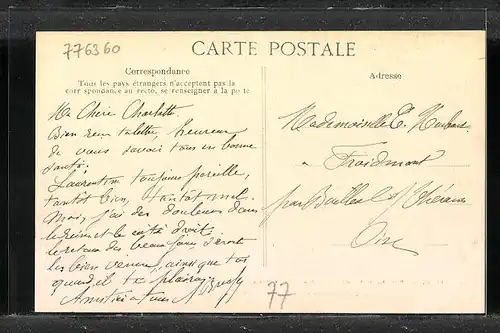 776360
CARTE POSTALE
Correspondance
Adresse
Tous les pays étrangers n'acceptent pas la
correspondance au recto, se renseigner à la poste
Ma Chère Charlotte
Bien reçu ta lettre, heureux
de vous savoir tous en bonne
santé.
Laurentine toujours pareille,
tantôt bien, tantôt mal.
Moi, j'ai des douleurs dans
les reins et le côté droit.
le retour des beaux jours seront
les bien venus, ainsi que toi
quand il te plaira.
Amitiés à tous
Mademoiselle E.
à Froidmont
par Bailleul s/ Thérain
Oise
77